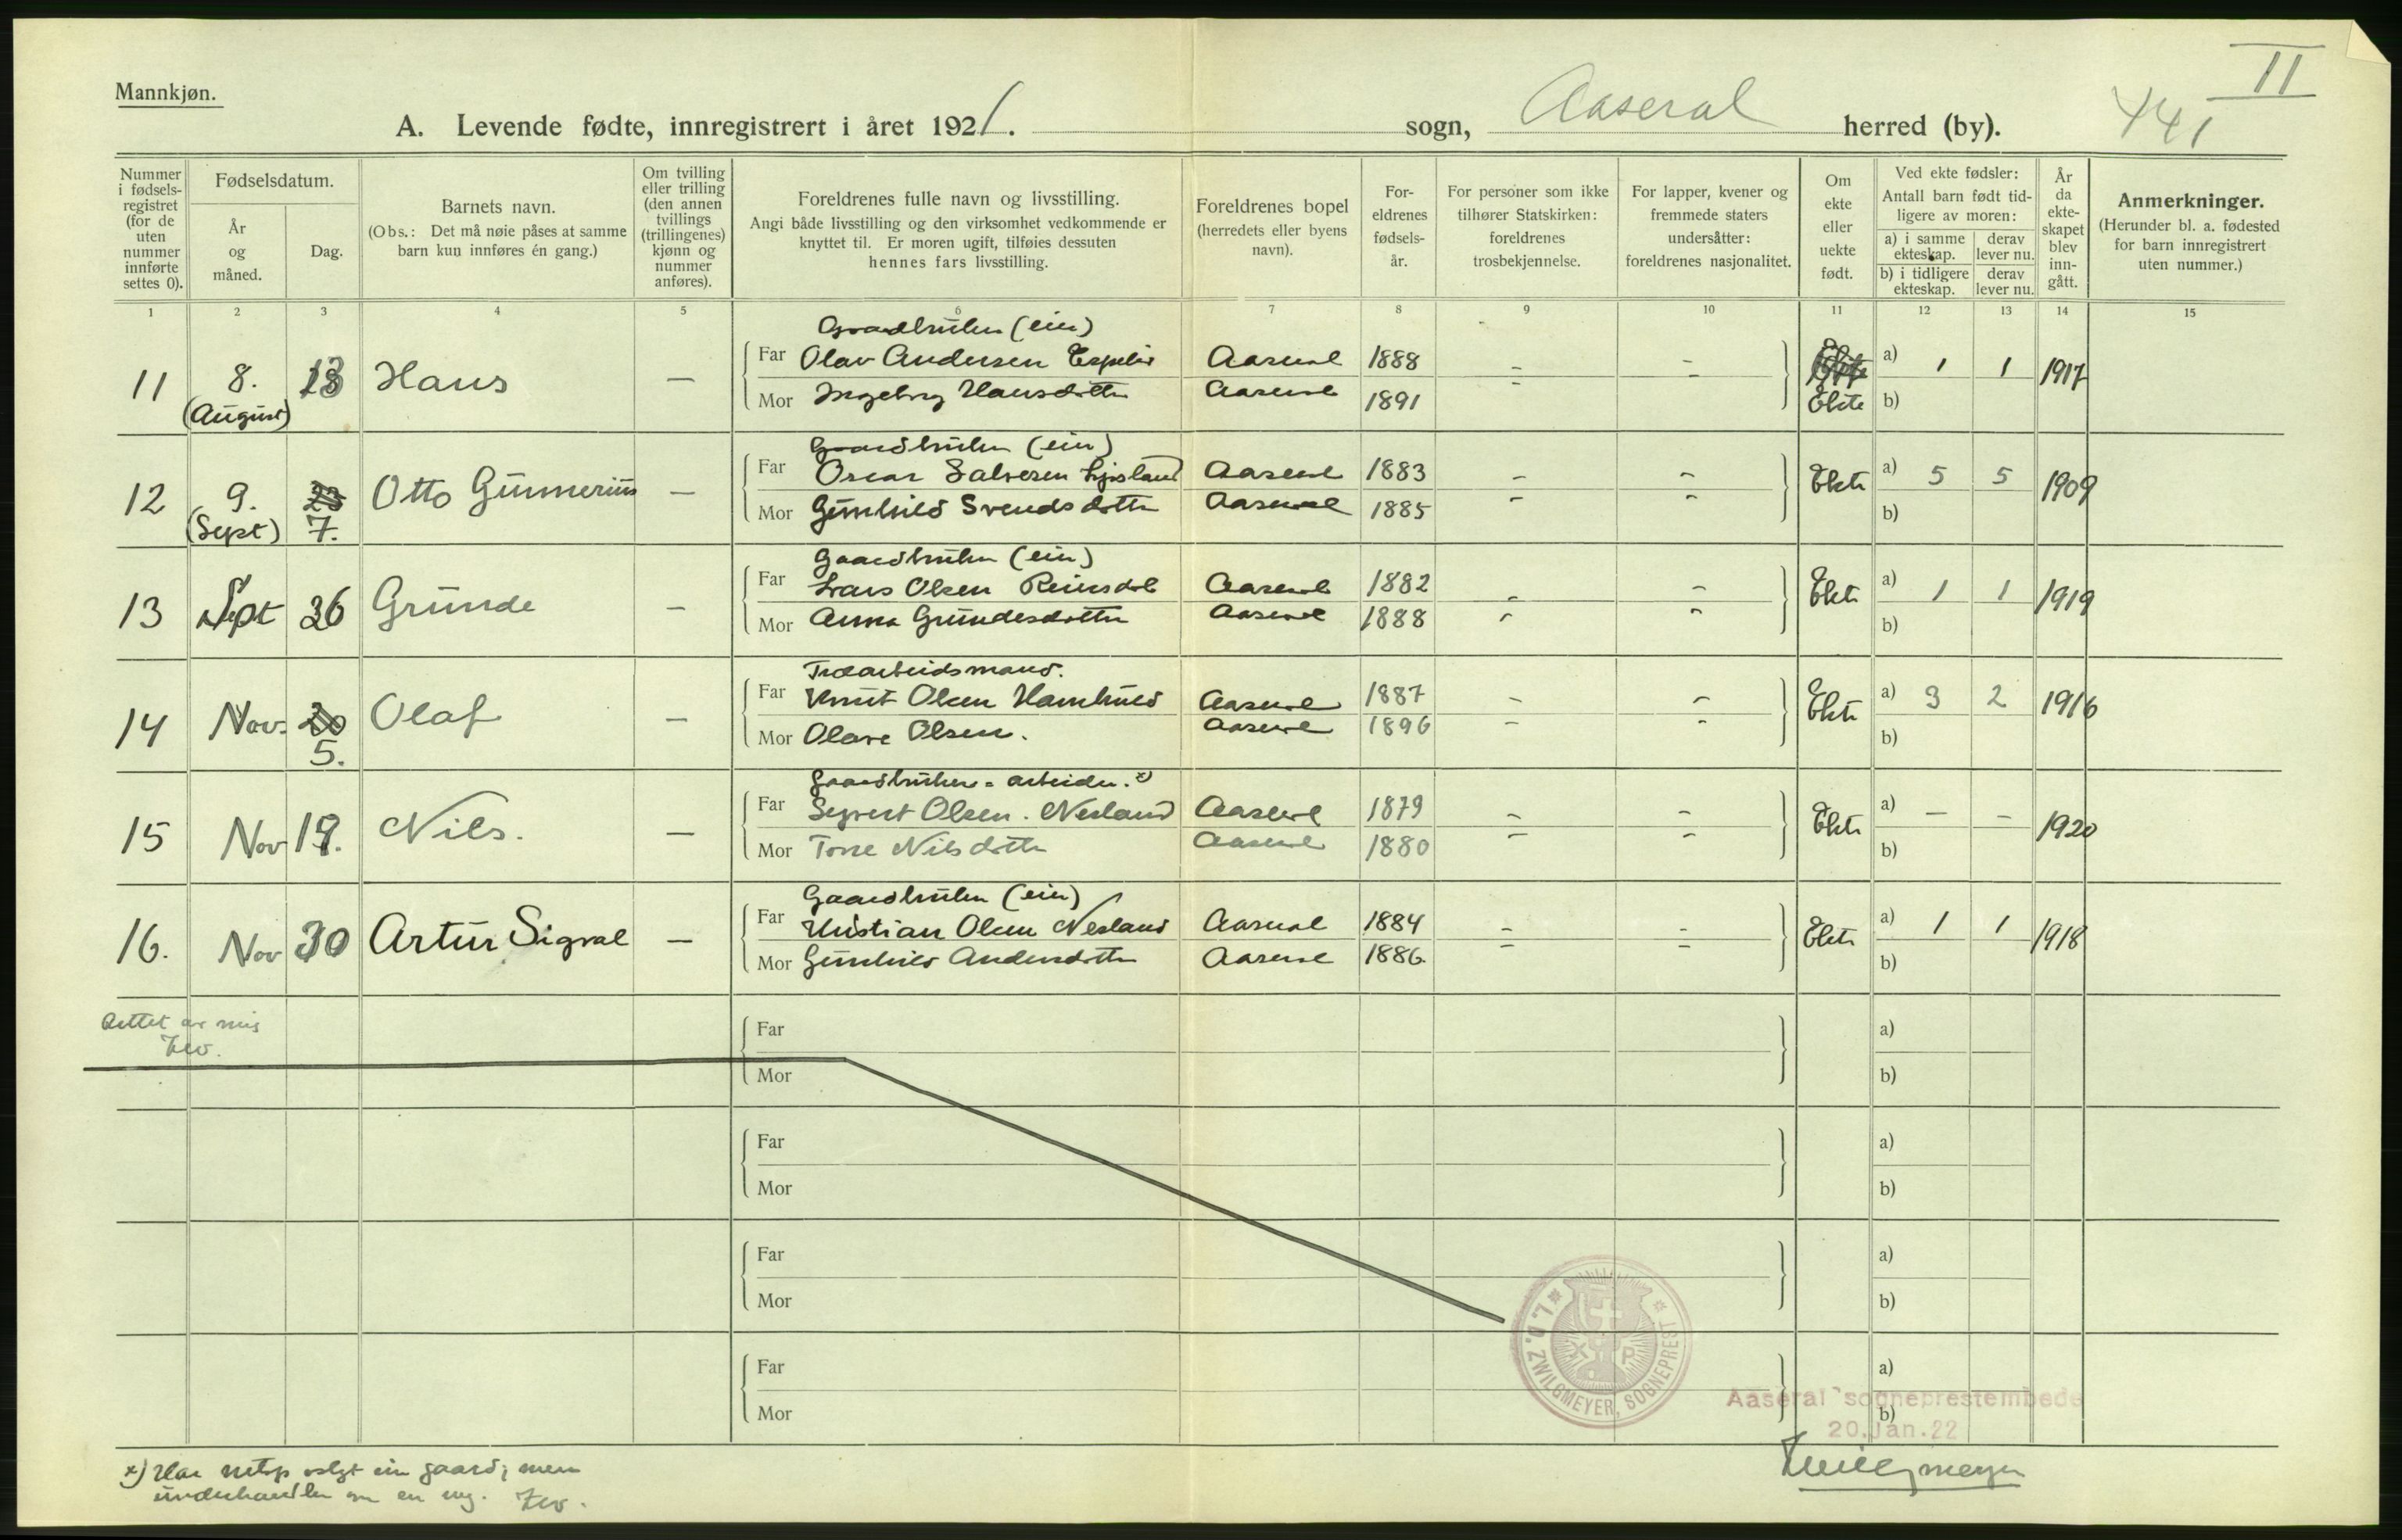 II
Mannkjøn.
A. Levende fødte, innregistrert i året 1921. sogn, Aaseral herred (by). 441
Nummer i fødselsregistret (for de uten nummer innførte settes 0).
Fødselsdatum.
År og måned.
Dag.
Barnets navn.
(Obs.: Det må nøie påses at samme barn kun innføres én gang.)
Om tvilling eller trilling (den annen tvillings (trillingenes) kjønn og nummer anføres).
Foreldrenes fulle navn og livsstilling.
Angi både livsstilling og den virksomhet vedkommende er knyttet til. Er moren ugift, tilføies dessuten hennes fars livsstilling.
Foreldrenes bopel (herredets eller byens navn).
Foreldrenes fødselsår.
For personer som ikke tilhører Statskirken: foreldrenes trosbekjennelse.
For lapper, kvener og fremmede staters undersåtter: foreldrenes nasjonalitet.
Om ekte eller uekte født.
Ved ekte fødsler: Antall barn født tidligere av moren:
a) i samme ekteskap. derav lever nu.
b) i tidligere ekteskap. derav lever nu.
År da ekteskapet blev inngått.
Anmerkninger.
(Herunder bl. a. fødested for barn innregistrert uten nummer.)
1 2 3 4 5 6 7 8 9 10 11 12 13 14 15
Gaardbruker (eier)
11 8. (August) 13 Hans — Far Olav Andersen Espelid Aaseral 1888 – – a) 1 1 1917
Mor Ingeborg Hansdotter Aaseral 1891 – Ekte b)
Gaardbruker (eier)
12 9. (Sept) 23 7. Otto Gunnerius — Far Oscar Salvesen Ljosland Aaseral 1883 – – Ekte a) 5 5 1909
Mor Gunhild Svendsdotter Aaseral 1885 – – b)
Gaardbruker (eier)
13 Sept 26 Grunde — Far Lars Olsen Reinsdal Aaseral 1882 – – Ekte a) 1 1 1919
Mor Anna Grundesdotter Aaseral 1888 – – b)
Træarbeidsmand.
14 Nov. 20 5. Olaf — Far Knut Olsen Aaseral 1887 – – Ekte a) 3 2 1916
Mor Olave Olsen. Aaseral 1896 – – b)
Gaardbruker = arbeider. x)
15 Nov 19. Nils. — Far Syvert Olsen. Nesland Aaseral 1879 – – Ekte a) – – 1920
Mor Torre Nilsdotter Aaseral 1880 – – b)
Gaardbruker (eier)
16. Nov 30 Artur Sigval — Far Kristian Olsen Nesland Aaseral 1884 – – Ekte a) 1 1 1918
Mor Gunhild Andersdotter Aaseral 1886. – – b)
Rettet av mig
Zw.
Far a)
Mor b)
Far a)
Mor b)
Far a)
Mor b)
L. D. ZWILGMEYER, SOGNEPREST
Far a)
Mor b)
Aaseral sogneprestembede
20. Jan. 22
Zwilgmeyer
x) Har netop solgt sin gaard; men
underhandler om en ny. Zw.